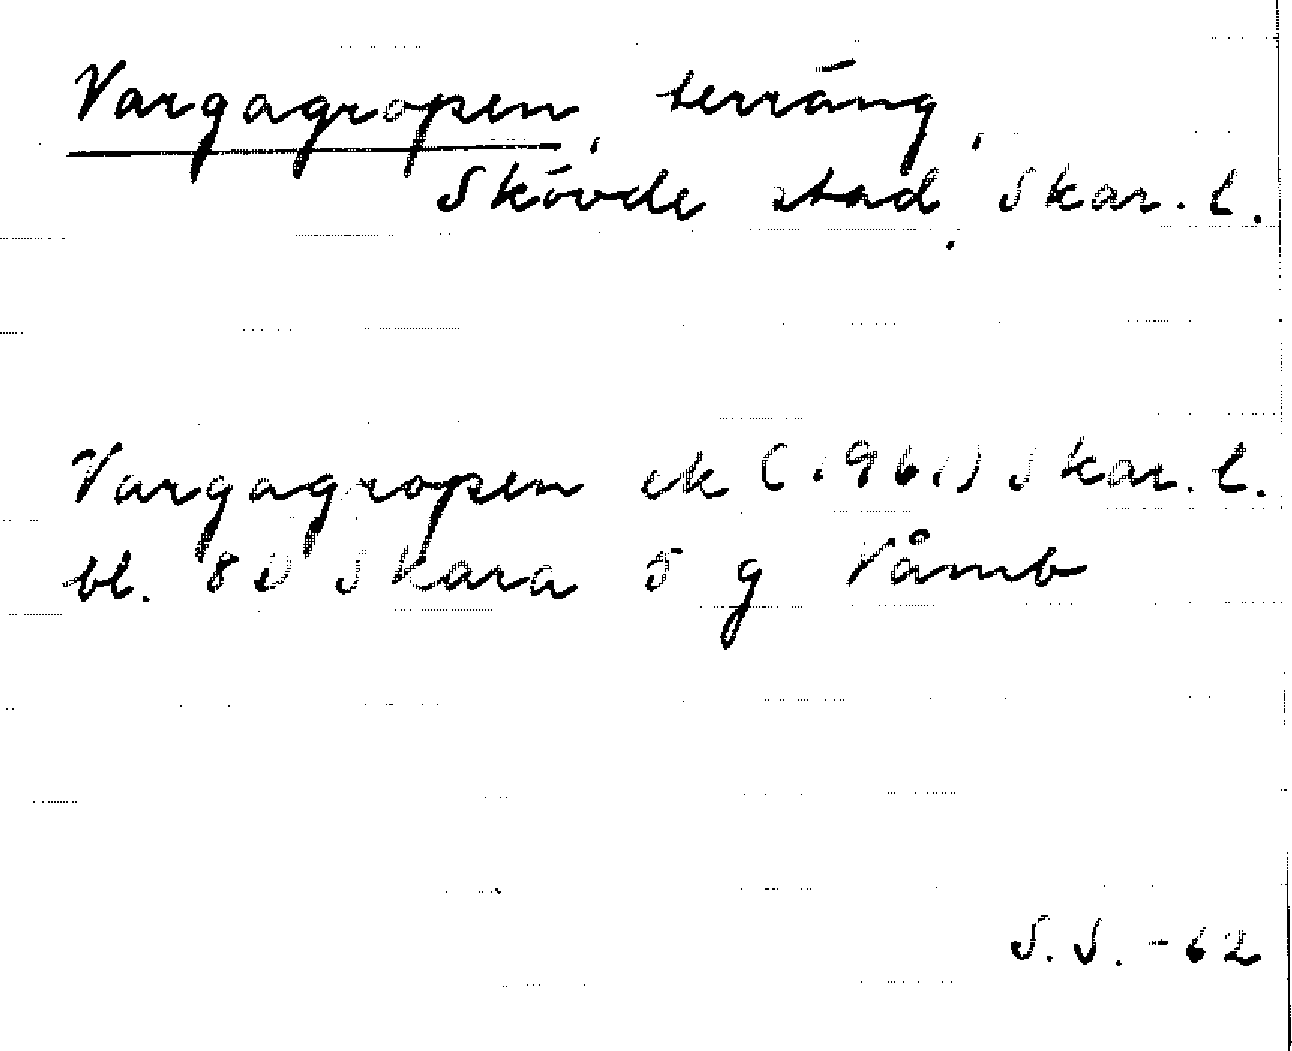 Vargagropen, terräng,
Skövde stad, Skar. l.
Vargagropen ek (1961) Skar. l.
bl. 8D Skara 5 g Våmb
S.S. -62